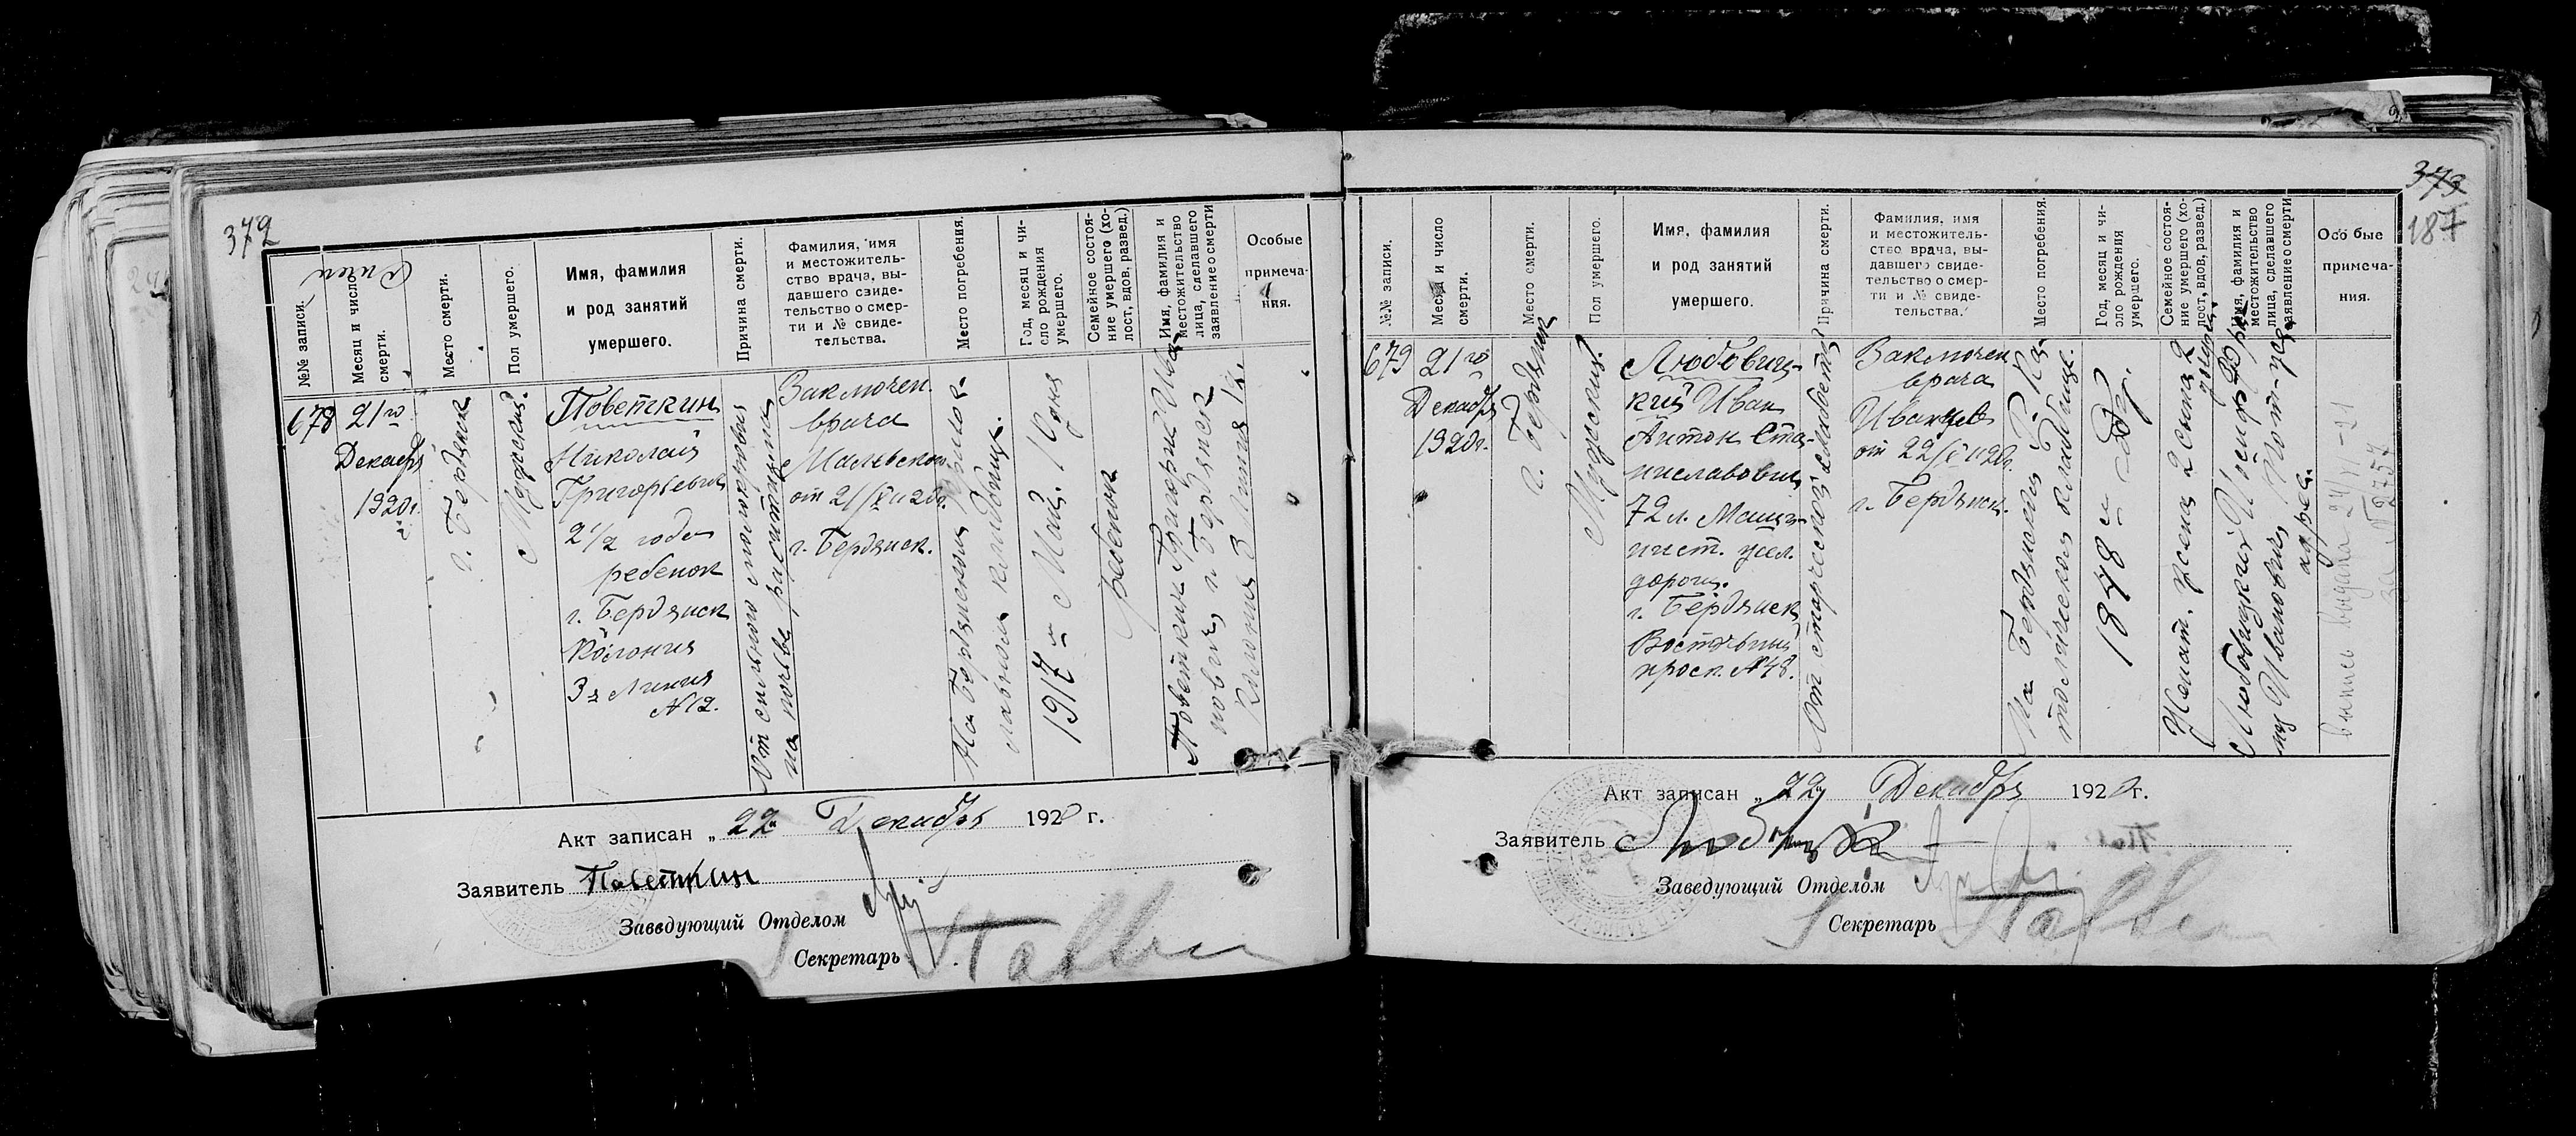 372
№№ записи.
Месяц и число
смерти.
Место смерти.
Пол умершего.
Имя, фамилия
и род занятий
умершего.
Причина смерти.
Фамилия, имя
и местожитель-
ство врача, вы-
давшего свиде-
тельство о смер-
ти и № свиде-
тельства.
Место погребения.
Год, месяц и чи-
сло рождения
умершего.
Семейное состоя-
ние умершего (хо-
лост, вдов, развед.)
Имя, фамилия и
местожительство
лица, сделавшего
заявление о смерти
Особые
примеча-
ния.
678
21го
Декабр
1920г.
г. Бердянск
Мужской.
Поветкин
Николай
Григорьевич
2 1/2 года
ребенок
г. Бердянск
Колония
3я Линия
№12.
От сильного малокровия
на почве
Заключен.
врача
от 21/XII 20г.
г. Бердянск.
На Бердянском
кладбищ.
1917 г. Май.
ребенок
Поветкин Григорий
г. Бердянск
Колония 3 Линия 12.
Акт записан „22" Декабря 1920 г.
Заявитель Поветкин
Заведующий Отделом
Секретарь
373
187
№№ записи.
Месяц и число
смерти.
Место смерти.
Пол умершего.
Имя, фамилия
и род занятий
умершего.
Причина смерти.
Фамилия, имя
и местожитель-
ство врача, вы-
давшего свиде-
тельство о смер-
ти и № свиде-
тельства.
Место погребения.
Год, месяц и чи-
сло рождения
умершего.
Семейное состоя-
ние умершего (хо-
лост, вдов, развед.)
Имя, фамилия и
местожительство
лица, сделавшего
заявление о смерти
Особые
примеча-
ния.
679
21го
Декабр
1920г.
г. Бердянск
Мужской.
Любовиц-
кий Иван
Антон Ста-
ниславович
72 л. Маши-
нист. жел.
дороги.
г. Бердянск
Восточный
просп. №48.
От старческой слабости
Заключен
врача
от 22/XII 20г.
г. Бердянск.
На Бердянский Р. Ка-
толическом кладбище.
1848
Женат. жена 2 сына 2
Любовицкий Иосиф
Иванович
адрес.
выпись выдана
за № 2757
Акт записан „22" Декабря 1920г.
Заявитель
Заведующий Отделом
Секретарь